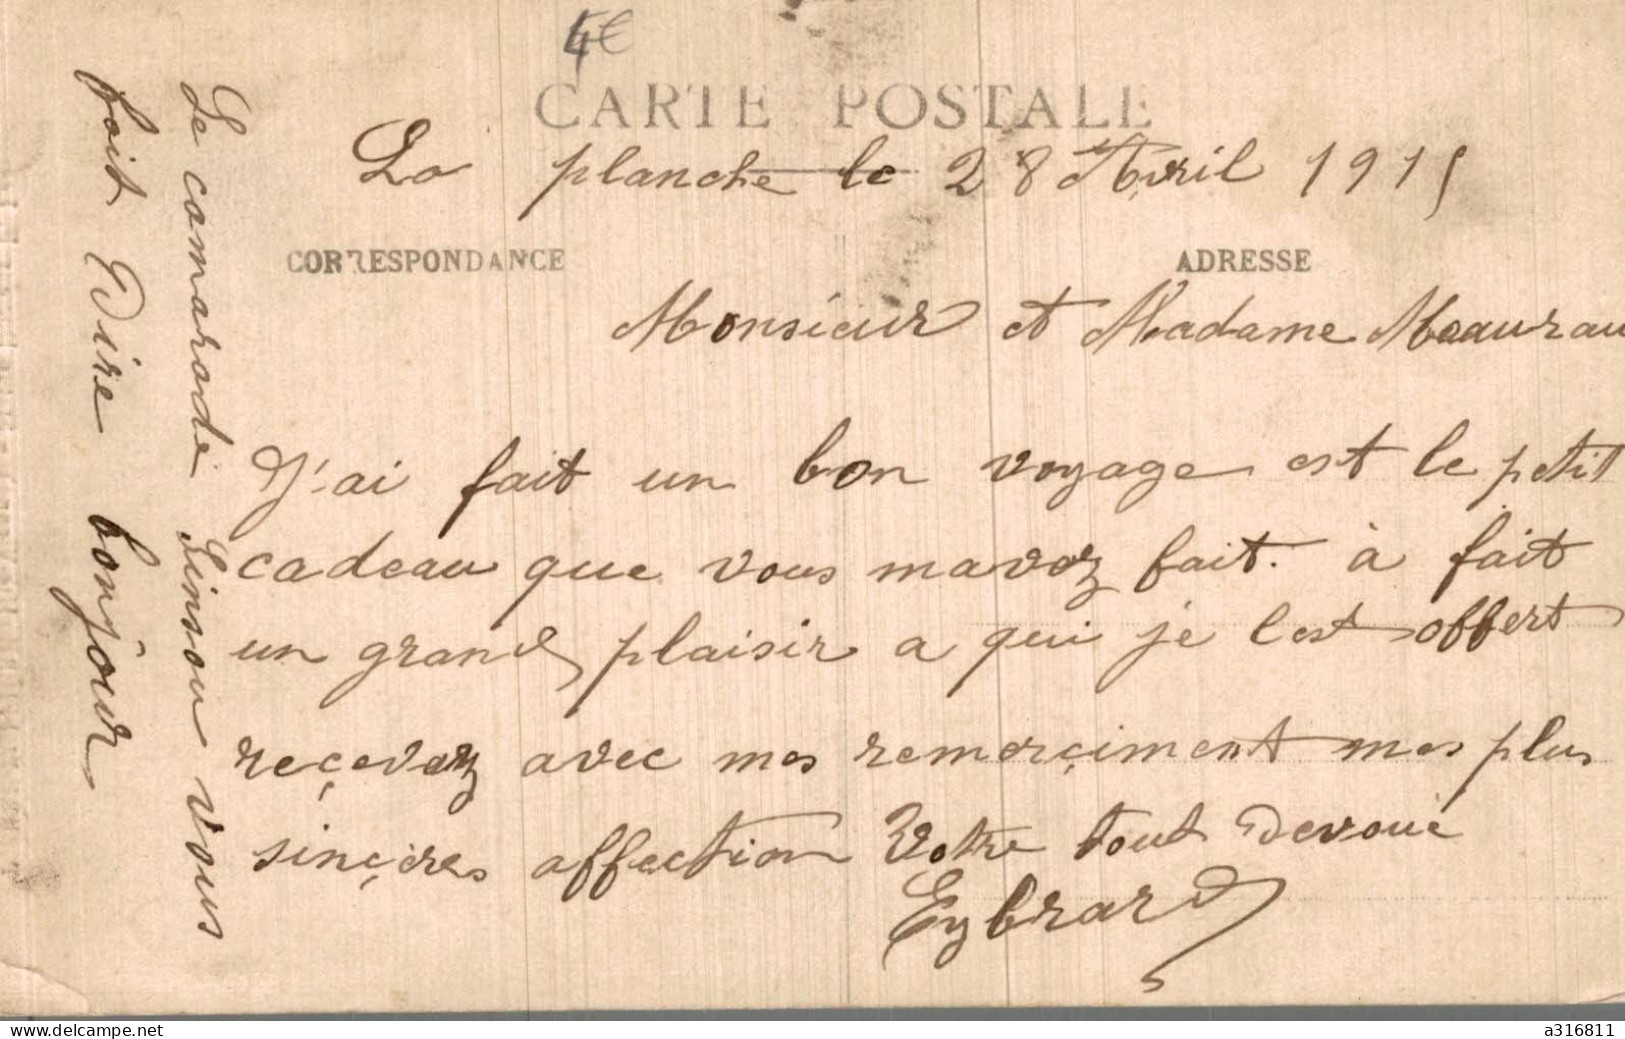 4€
CARTE POSTALE
La planche le 28 Avril 1915
CORRESPONDANCE
ADRESSE
Monsieur et Madame
J'ai fait un bon voyage est le petit
cadeau que vous mavez fait. à fait
un grand plaisir a qui je lest offert
reçevez avec mes remerçiment mes plus
sinçères affection Votre tout Devoué
Eybrard
Le camarade Sinsou vous
fait Dire bonjour
www.delcampe.net
a316811